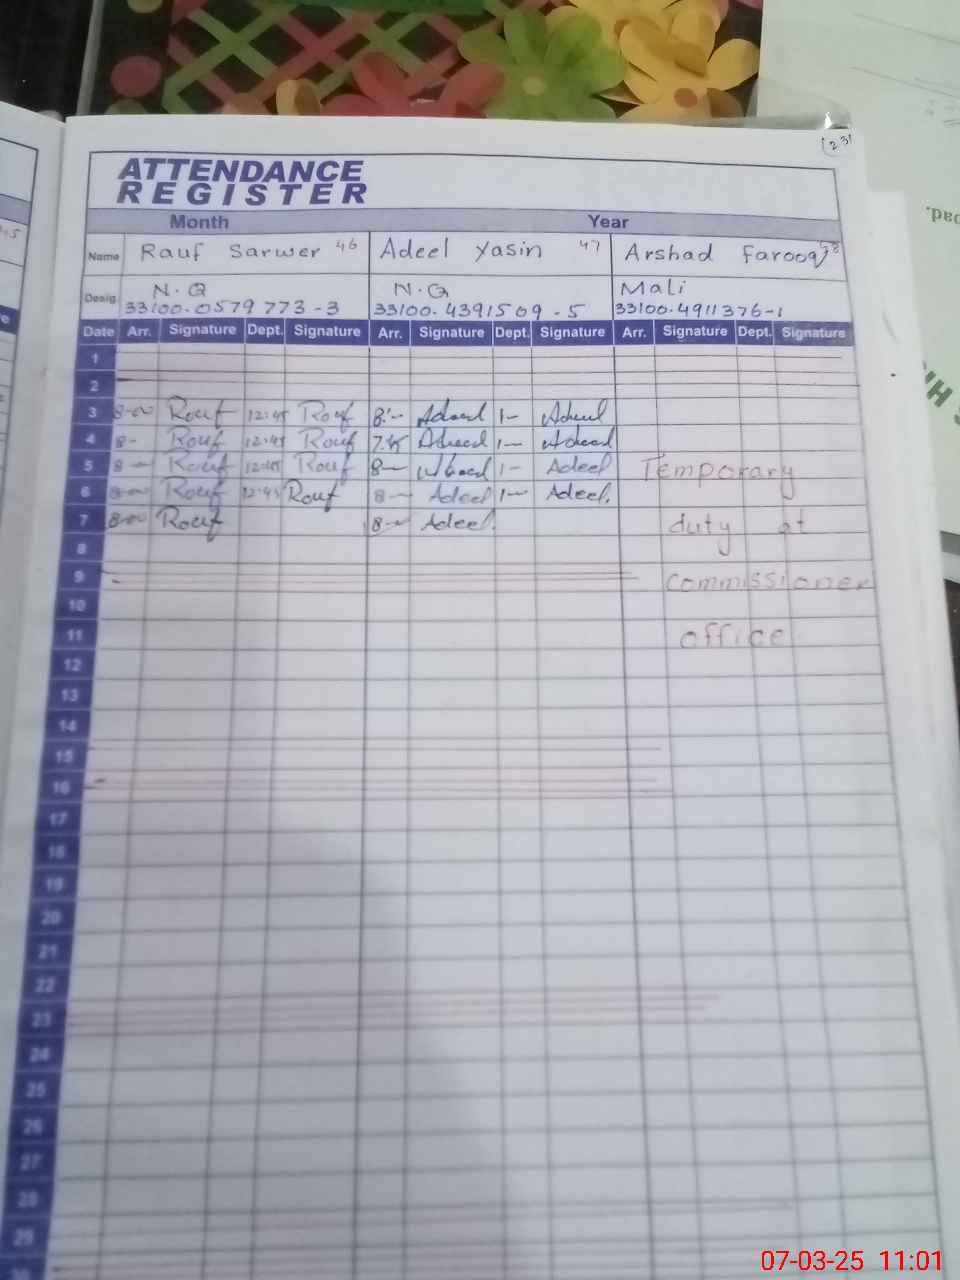 231
ATTENDANCE
REGISTER
Month Year
Name Rauf Sarwer 46 Adeel Yasin 47 Arshad Farooq 48
Desig. N.Q N.Q Mali
33100-0579773-3 33100-4391509-5 33100-4911376-1
Date Arr. Signature Dept. Signature Arr. Signature Dept. Signature Arr. Signature Dept. Signature
1
2
3 8- Rouf 12:45 Rouf 8:- Adeel 1- Adeel
4 8- Rouf 12:45 Rouf 7.45 Adeel 1- Adeel
5 8- Rouf 12:45 Rouf 8- Adeel 1- Adeel Temporary
6 8- Rouf 12:45 Rouf 8- Adeel 1- Adeel.
7 8- Rouf 8- Adeel. duty at
8
9 commissioner
10
11 office
12
13
14
15
16
17
18
19
20
21
22
23
24
25
26
27
28
29
30
07-03-25 11:01